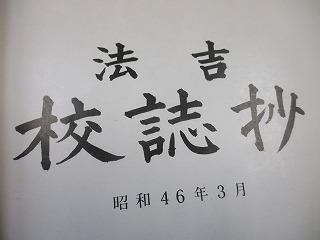 法吉
校誌抄
昭和46年3月